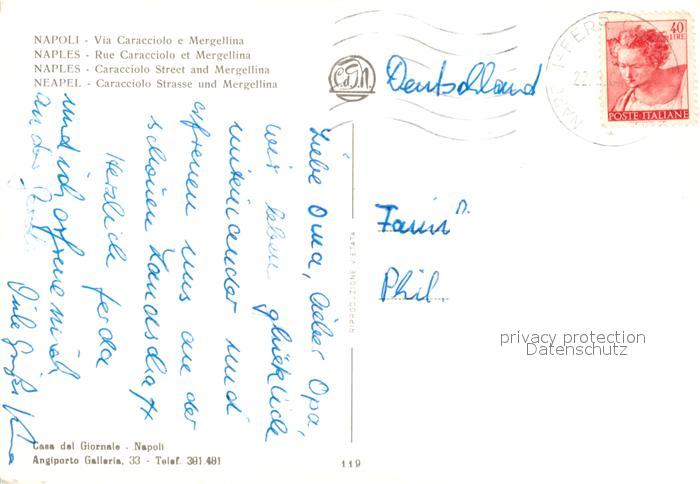 NAPOLI - Via Caracciolo e Mergellina
NAPLES - Rue Caracciolo et Mergellina
NAPLES - Caracciolo Street and Mergellina
NEAPEL - Caracciolo Strasse und Mergellina
Deutschland
40
LIRE
POSTE ITALIANE
22.
Liebe Oma, lieber Opa,
wir leben glücklich
miteinander und
erfreuen uns an der
schönen Landschaft
Herzliche
und ich erfreue mich
an der
Viele Grüße
Fam.
Phil.
RIPRODUZIONE VIETATA
privacy protection
Datenschutz
Casa del Giornale - Napoli
Angiporto Galleria, 33 - Telef. 391.481
119